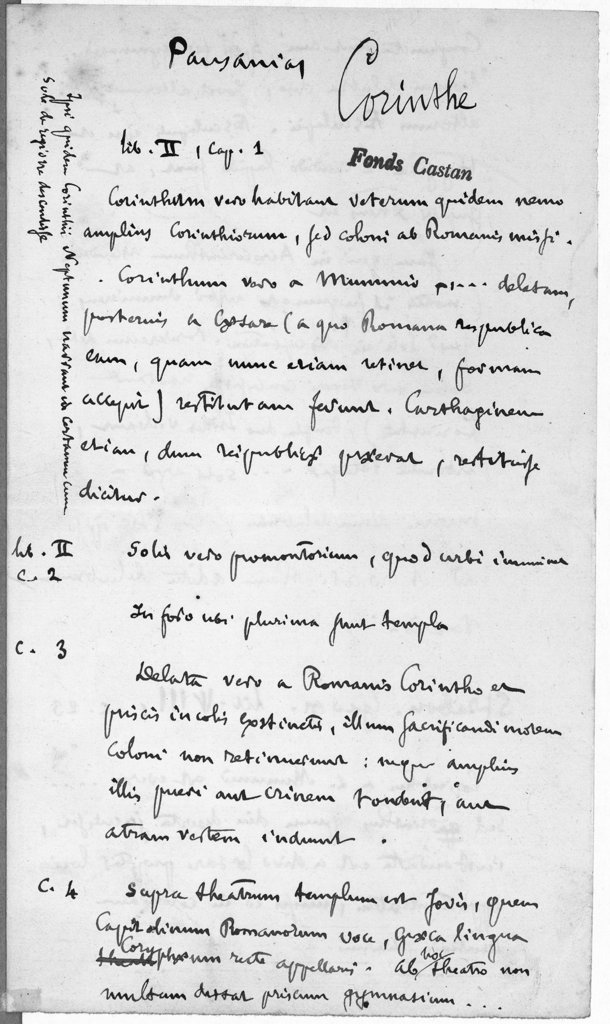 Pausanias
Corinthe
Fonds Castan
lib. II, Cap. 1
Corinthum vero habitant veterum quidem nemo
amplius Corinthiorum, sed coloni ab Romanis missi.
. Corinthum vero a Mummio .... deletam,
posterius a Cæsare (a quo Romana respublica
eam, quam nunc etiam retinet, formam
accepit) restitutam ferunt. Carthaginem
etiam, dum reipublicæ præerat, restituisse
dicitur.
Ipsi quidem Corinthii Neptunum narrant in certamen cum
Sole de regione descendisse
lib. II
c. 2
Solis vero promontorium, quod urbi imminet
In foro ubi plurima sunt templa
c. 3
Deleta vero a Romanis Corintho et
priscis incolis exstinctis, illum sacrificandi morem
coloni non retinuerunt : neque amplius
illis pueri aut crinem tondent, aut
atram vestem induunt .
c. 4
Supra theatrum templum est Jovis, quem
Capitolinum Romanorum voce, Græca lingua
Coryphæum recte appellaris. Ab hoc theatro non
multum distat priscum gymnasium ...